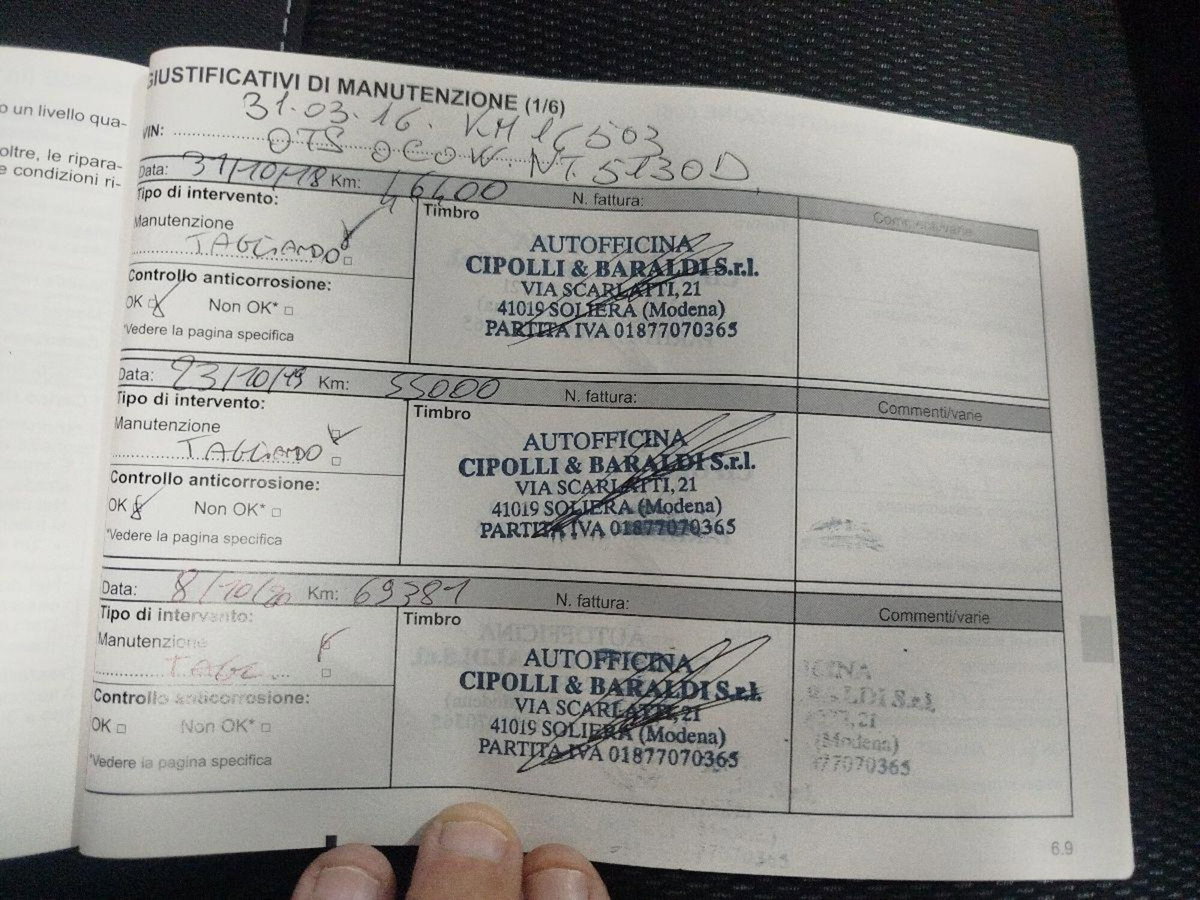 o un livello qua-
oltre, le ripara-
e condizioni ri-
GIUSTIFICATIVI DI MANUTENZIONE (1/6)
31.03.16. KM 16503
VIN:
Data: 31/10/18 Km: 46400 N. fattura:
Tipo di intervento:
Manutenzione
TAGLIANDO
Controllo anticorrosione:
OK Non OK*
*Vedere la pagina specifica
Timbro
AUTOFFICINA
CIPOLLI & BARALDI S.r.l.
VIA SCARLATTI, 21
41019 SOLIERA (Modena)
PARTITA IVA 01877070365
Commenti/varie
Data: 23/10/19 Km: 55000 N. fattura:
Tipo di intervento:
Manutenzione
TAGLIANDO
Controllo anticorrosione:
OK Non OK*
*Vedere la pagina specifica
Timbro
AUTOFFICINA
CIPOLLI & BARALDI S.r.l.
VIA SCARLATTI, 21
41019 SOLIERA (Modena)
PARTITA IVA 01877070365
Commenti/varie
Data: 8/10/20 Km: 69381 N. fattura:
Tipo di intervento:
Manutenzione
TAGL.
Controllo anticorrosione:
OK Non OK*
*Vedere la pagina specifica
Timbro
AUTOFFICINA
CIPOLLI & BARALDI S.r.l.
VIA SCARLATTI, 21
41019 SOLIERA (Modena)
PARTITA IVA 01877070365
Commenti/varie
ICINA
RALDI S.r.l.
TTI, 21
(Modena)
77070365
6.9